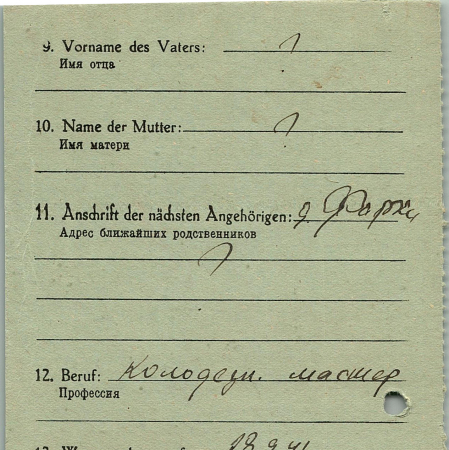 9. Vorname des Vaters:
Имя отца
10. Name der Mutter:
Имя матери
11. Anschrift der nächsten Angehörigen: д. Фархи
Адрес ближайших родственников
12. Beruf: Колодезн. мастер
Профессия